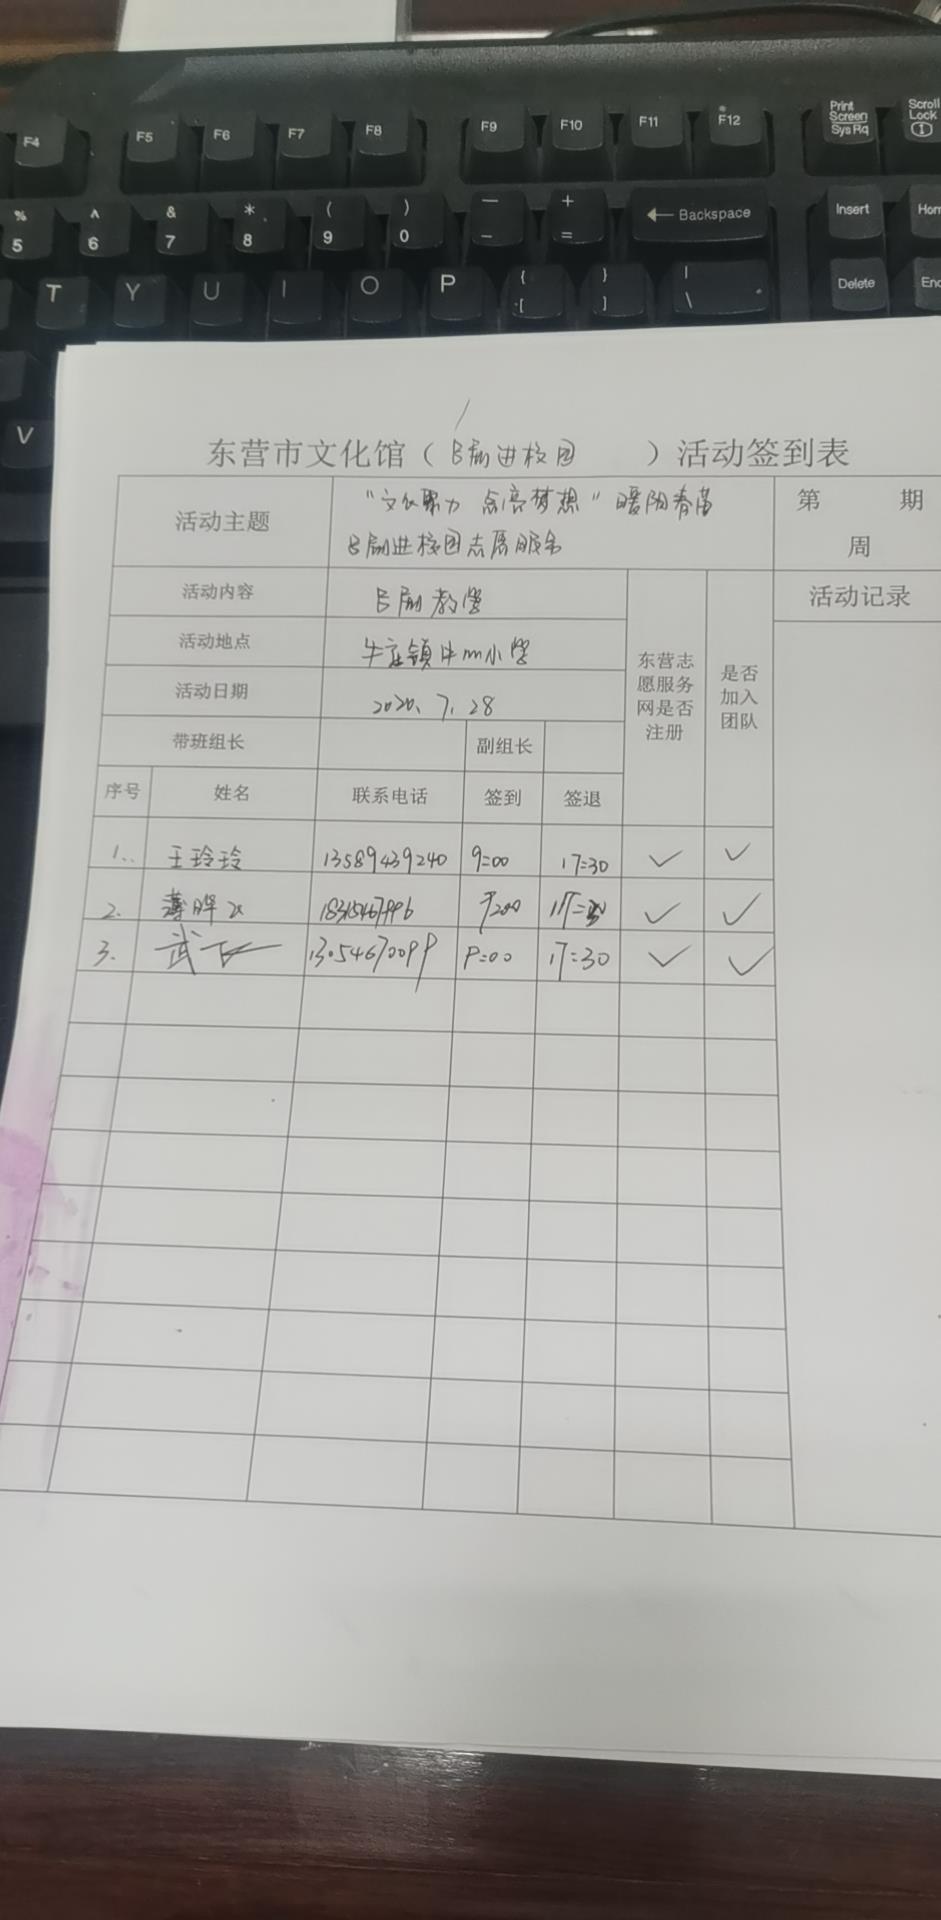 F4 F5 F6 F7 F8 F9 F10 F11 F12 Print Screen SysRq Scroll Lock
% 5 ^ 6 & 7 * 8 ( 9 ) 0 — - + = ← Backspace Insert Hom
T Y U I O P { [ } ] | \ Delete End
V
东营市文化馆（吕剧进校园 ）活动签到表
活动主题 “文化聚力 点亮梦想”暖阳春苗
吕剧进校园志愿服务
第 期
周
活动内容 吕剧教学
活动记录
活动地点 牛庄镇中心小学
活动日期 2020.7.28
东营志愿服务网是否注册
是否加入团队
带班组长 副组长
序号 姓名 联系电话 签到 签退
1. 王玲玲 13589439240 9:00 17:30 ✓ ✓
2. 薄 ✓ ✓
3. 武 13054670099 9:00 17:30 ✓ ✓